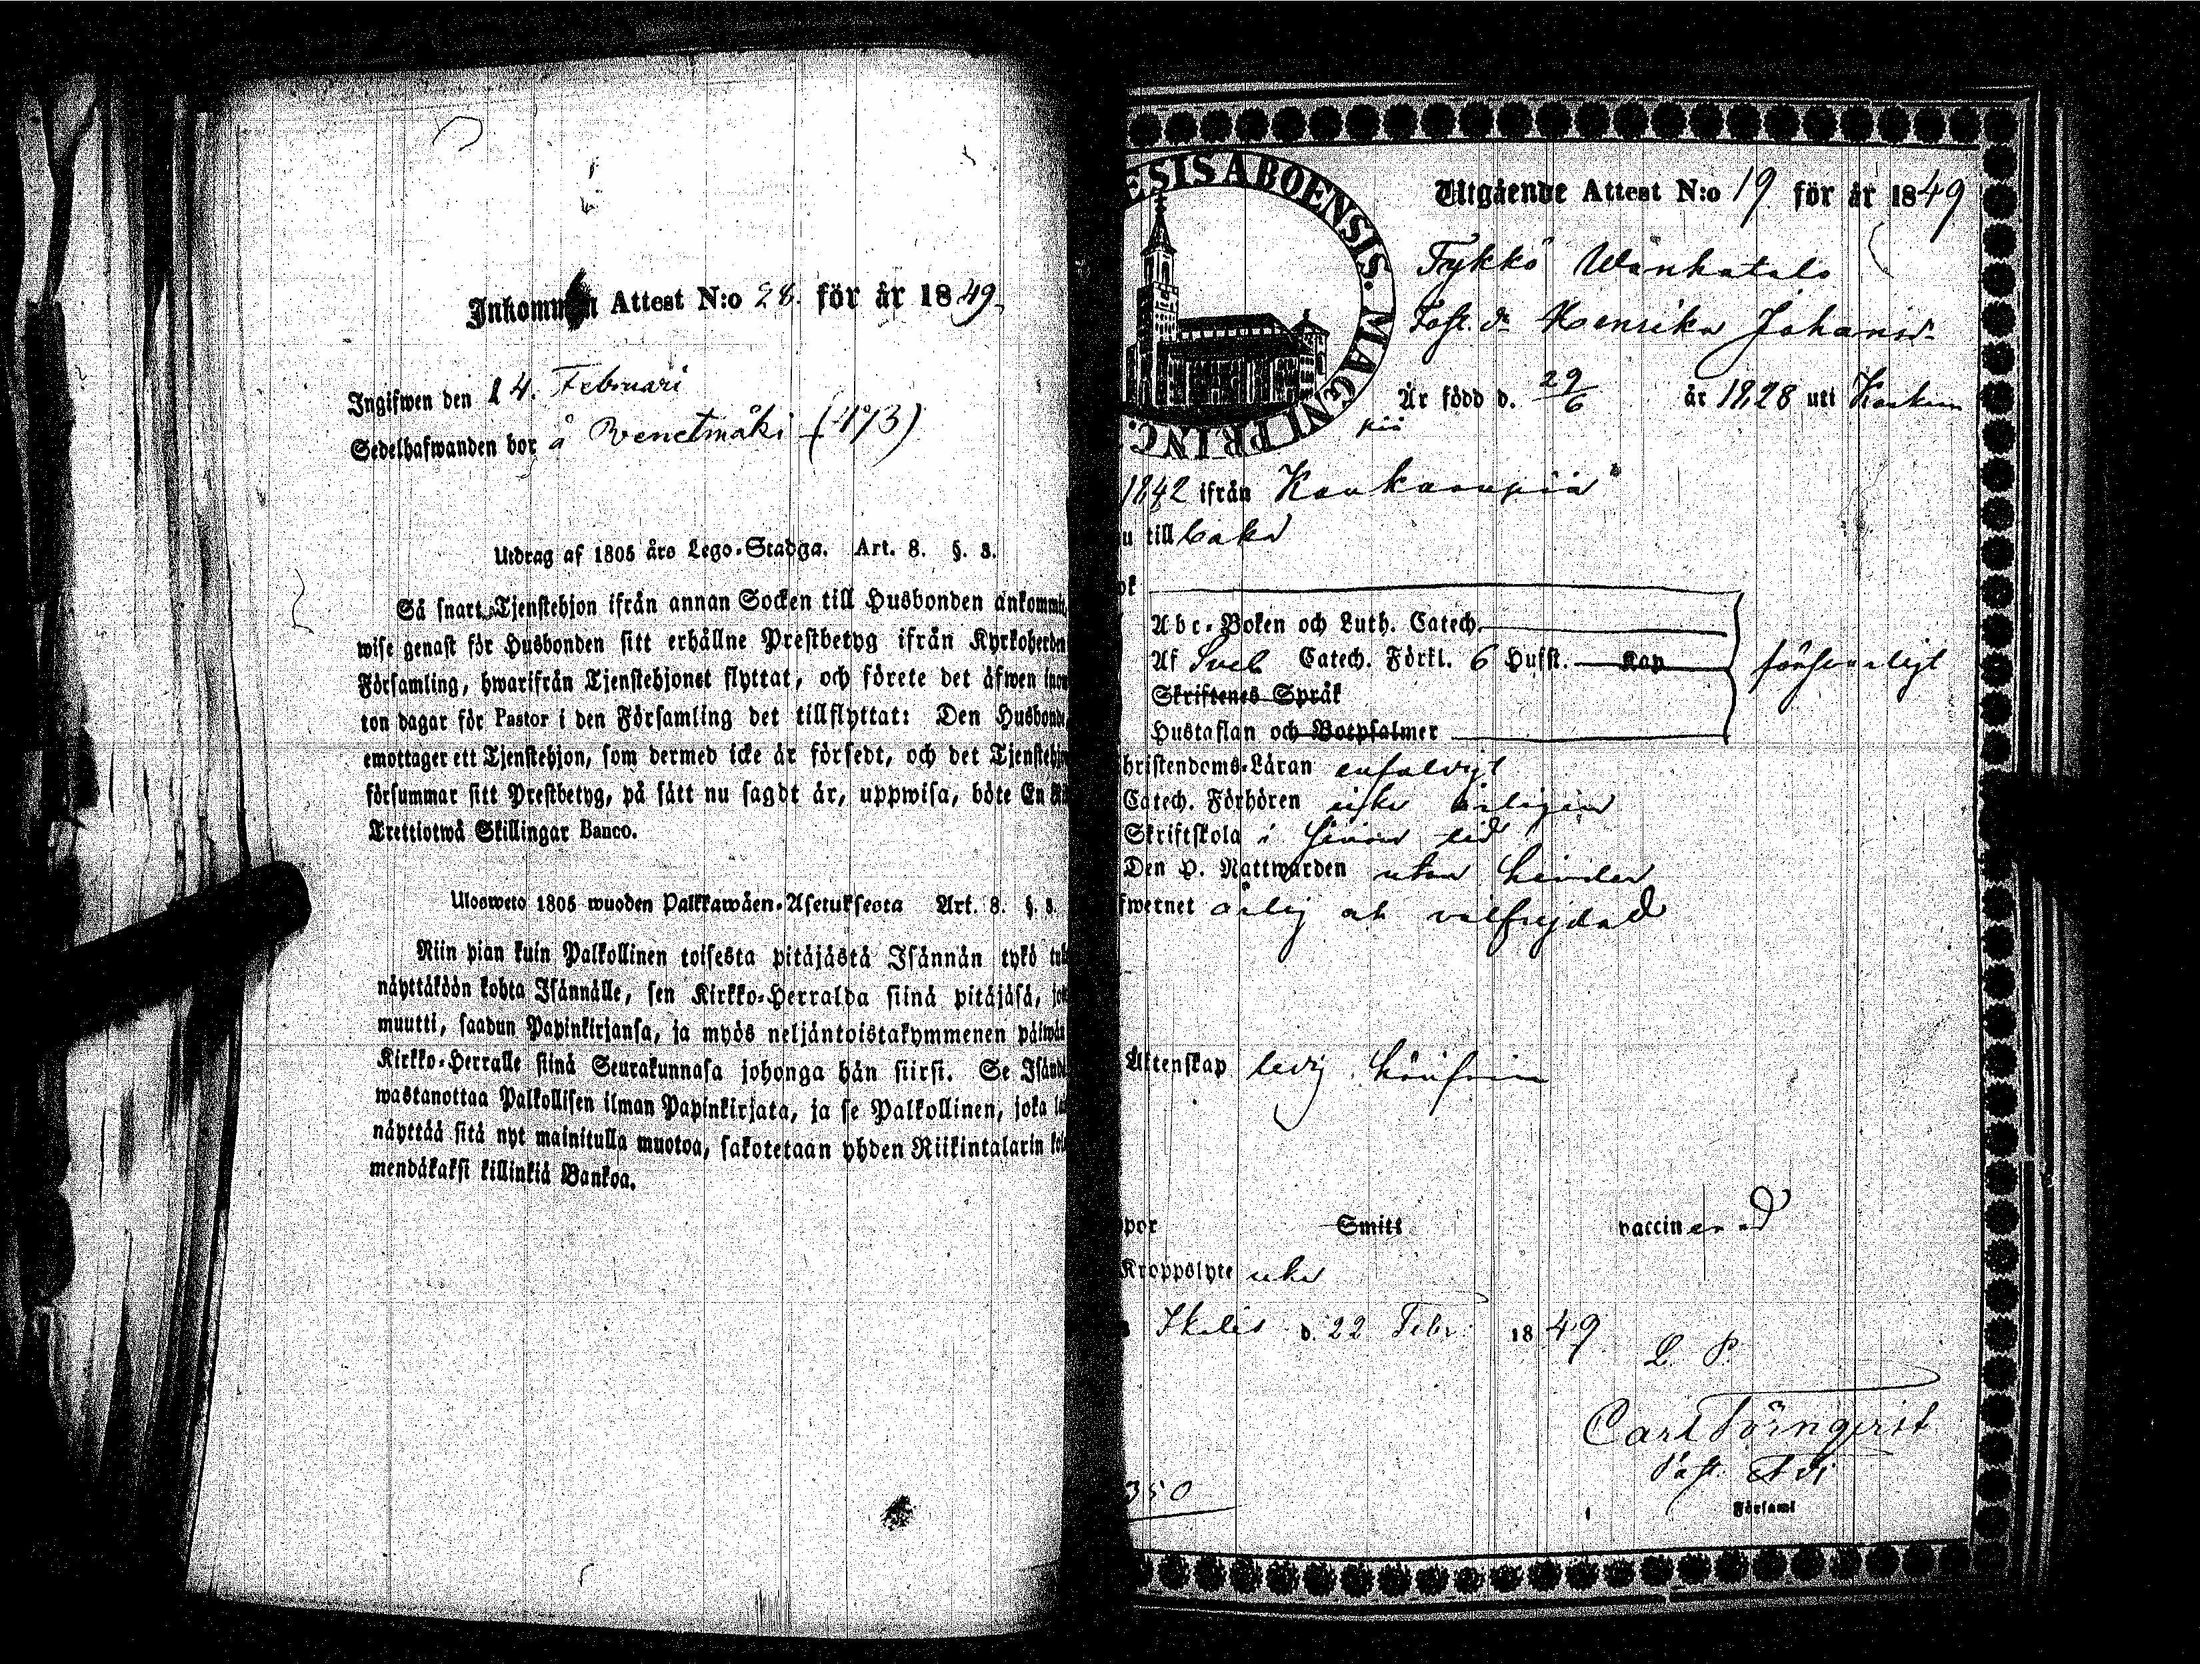 Inkommen Attest N:o 28. för år 1849.
Ingifwen den 14. Februari
Sedelhafwanden bor å Wenetmäki (473)
Utdrag af 1805 års Lego-Stadga. Art. 8. §. 3.
Så snart Tjenstehjon ifrån annan Socken till Husbonden ankommit,
wise genast för Husbonden sitt erhållne Prestbetyg ifrån Kyrkoherden
Församling, hwarifrån Tjenstehjonet flyttat, och förete det äfwen inom
ton dagar för Pastor i den Församling det tillflyttat: Den Husbonde,
emottager ett Tjenstehjon, som dermed icke är försedt, och det Tjenstehjon
försummar sitt Prestbetyg, på sätt nu sagdt är, uppwisa, böte En Ri
Trettiotwå Skillingar Banco.
Ulosweto 1805 wuoden Palkkawäen-Asetuksesta Art. 8. §. 3.
Niin pian kuin Palkollinen toisesta pitäjästä Isännän tykö tul
näyttäköön kohta Isännälle, sen Kirkko-Herralda siinä pitäjäsä, jo
muutti, saadun Papinkirjansa, ja myös neljäntoistakymmenen päiwän
Kirkko-Herralle siinä Seurakunnasa johonga hän siirsi. Se Isändä
wastanottaa Palkollisen ilman Papinkirjata, ja se Palkollinen, joka lai
näyttää sitä nyt mainitulla muotoa, sakotetaan yhden Riikintalarin kol
mendäkaksi killinkiä Bankoa.
ESIS ABOENSIS. MAGNI PRINC.
Utgående Attest N:o 19 för år 1849
Tykkö Wanhatalo
Henrika Johansd.
Är född d. 29/6 år 1828 uti Kankan
pää
1842 ifrån Kankaanpää
u till baka
ok
Abc-Boken och Luth. Catech.
Af Sveb Catech. Förkl. 6 Hufst. Kap
Skriftenes Språk
Hustaflan och Botpsalmer
försvarligt
hristendoms-Läran enfaldigt
Catech. Förhören icke årligen
Skriftskola i sinom tid
Den H. Nattwarden utan hinder
fwernet ärlig och välfrejdad
Äktenskap ledig, hinfri
por Smitt vaccinerad
Kroppslyte utan
Ikalis d. 22 Febr. 1849
L. P.
Carl Törnqvist
Past. Adj
Församl
350